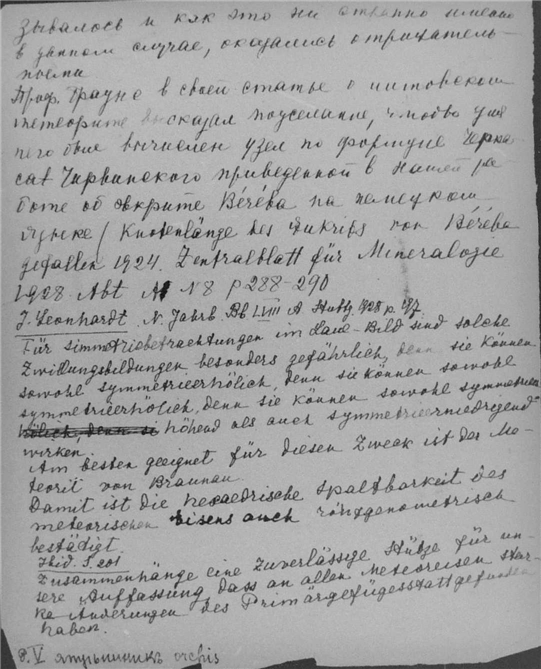 зывалось и как это ни странно имеено
в данном случае, оказались отрицатель-
ности
Проф. Браунс в своей статье о
метеорите высказал пожелание, чтобы для
него был вычислен узел по формуле
Чирвинского приведенной в нашей ра
боте об эвкрите Béréba на немецком
языке / Knotenlänge des Eukrits von Béréba
gefallen 1924. Zentralblatt für Mineralogie
1928 Abt A N 8 p 288-290
J. Leonhardt. N. Jahrb. Bb LVIII A Stuttg. 1928 p. 187.
Für simmetriebetrachtungen im Laue-Bild sind solche
Zwillingsbildungen besonders gefährlich, denn sie können
sowohl symmetrieerhölich, denn sie können sowohl
symmetrieerhölich, denn sie können sowohl symmetrieer
höhend als auch symmetrieerniedrigend
wirken.
Am besten geeignet für diesen Zweck ist der Me-
teorit von Braunau.
Damit ist die hexaedrische Spaltbarkeit des
meteorischen Eisens auch röntgenometrisch
bestädigt.
Ibid. S. 201
Zusammenhänge eine zuverlässige Stütze für un-
sere Auffassung dass an allen Meteoreisen star-
ke Änderungen des Primärgefügesstattgefunden
haben.
8.V ятрышникъ orchis